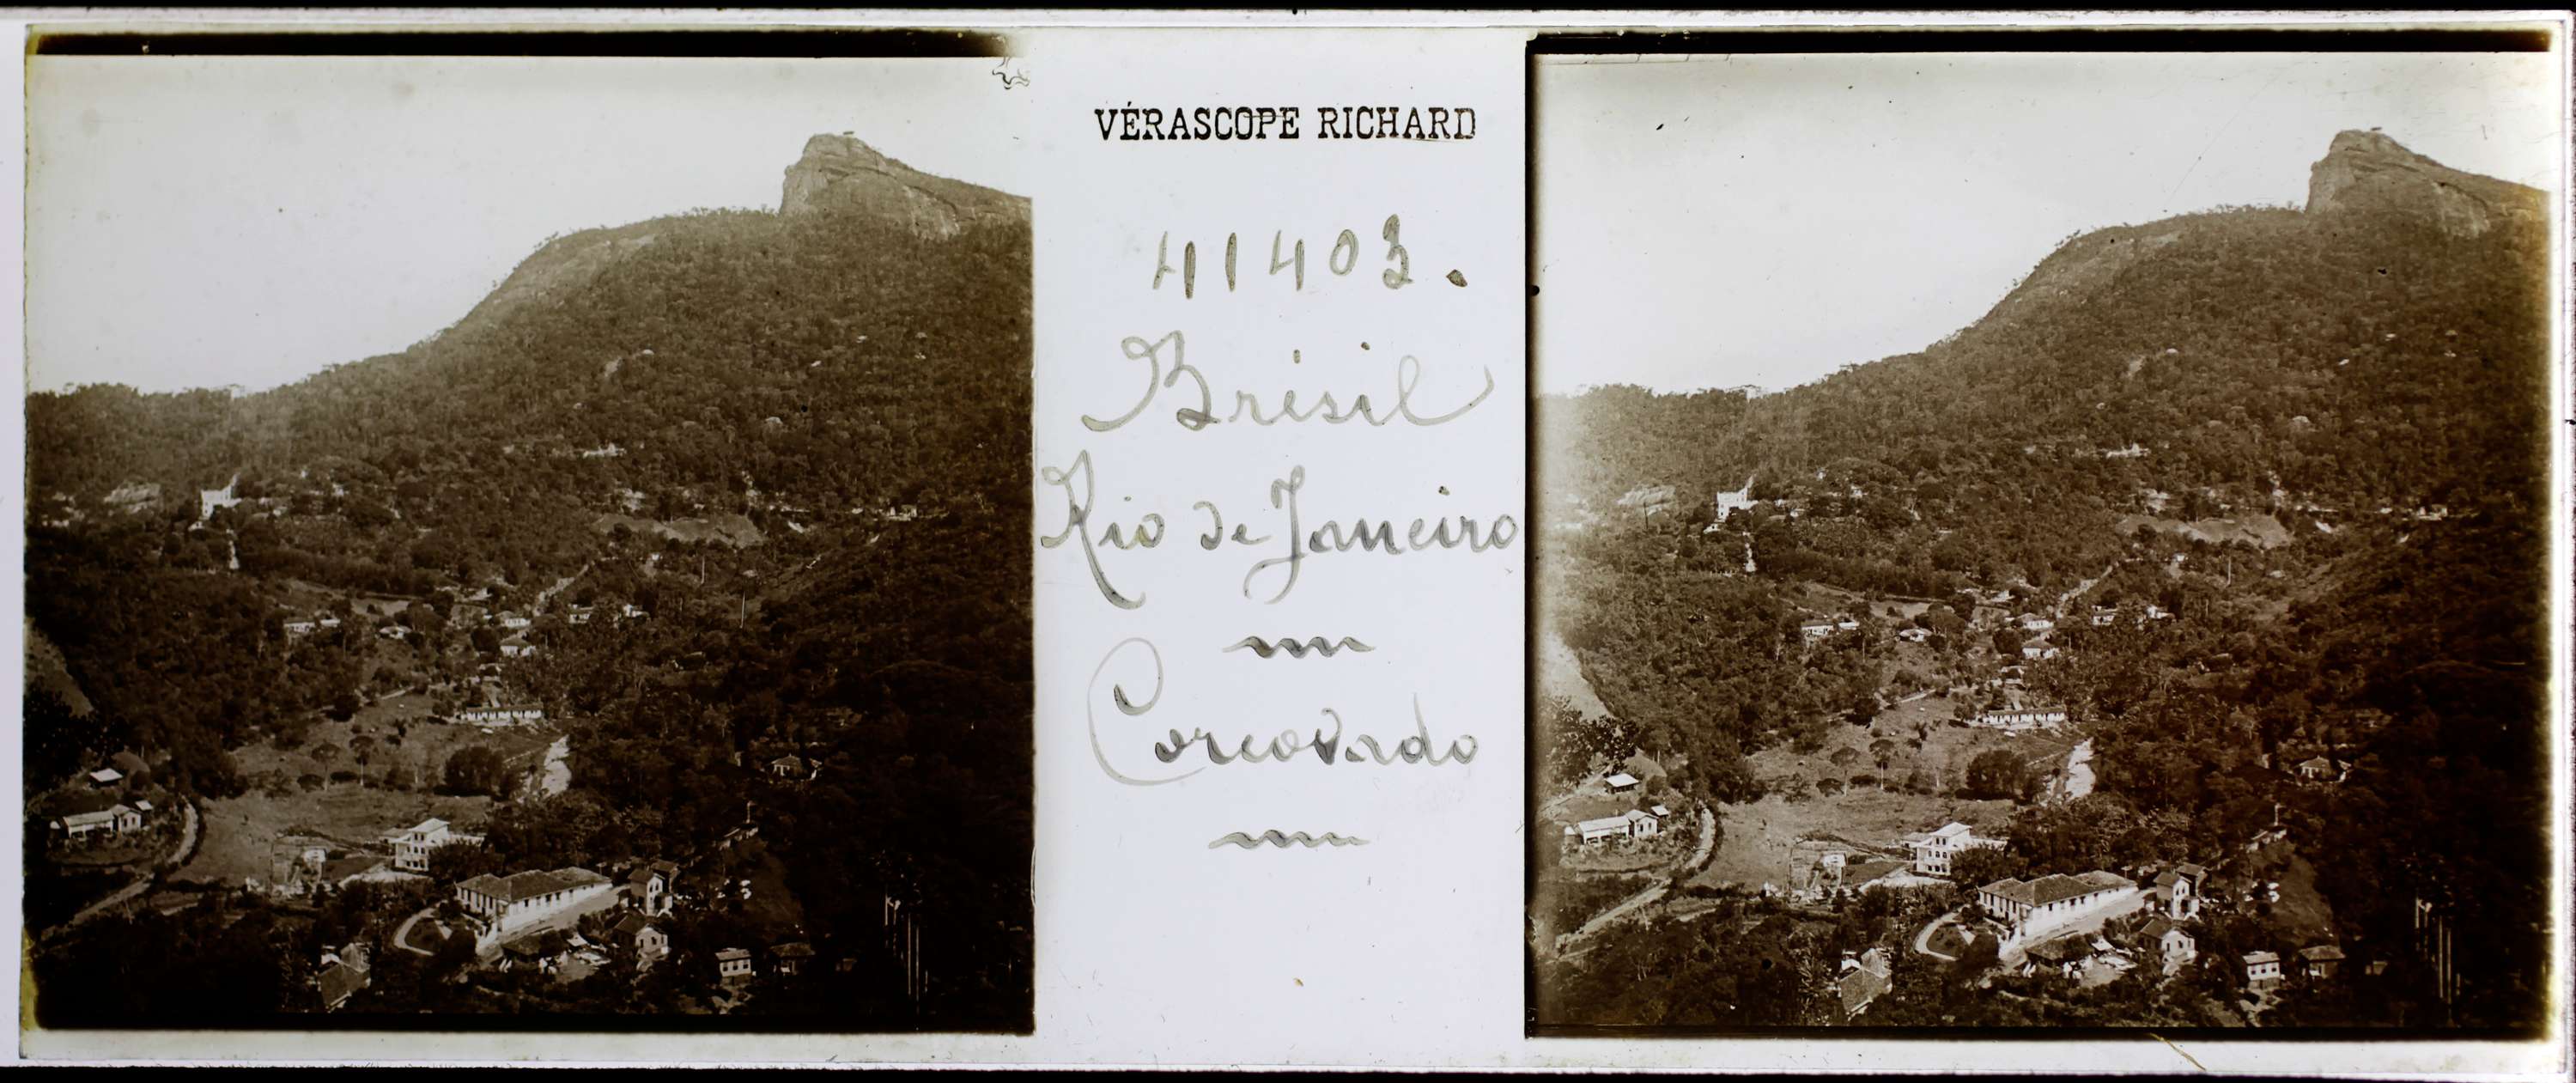 VÉRASCOPE RICHARD
41403.
Brésil
Rio de Janeiro
Corcovado